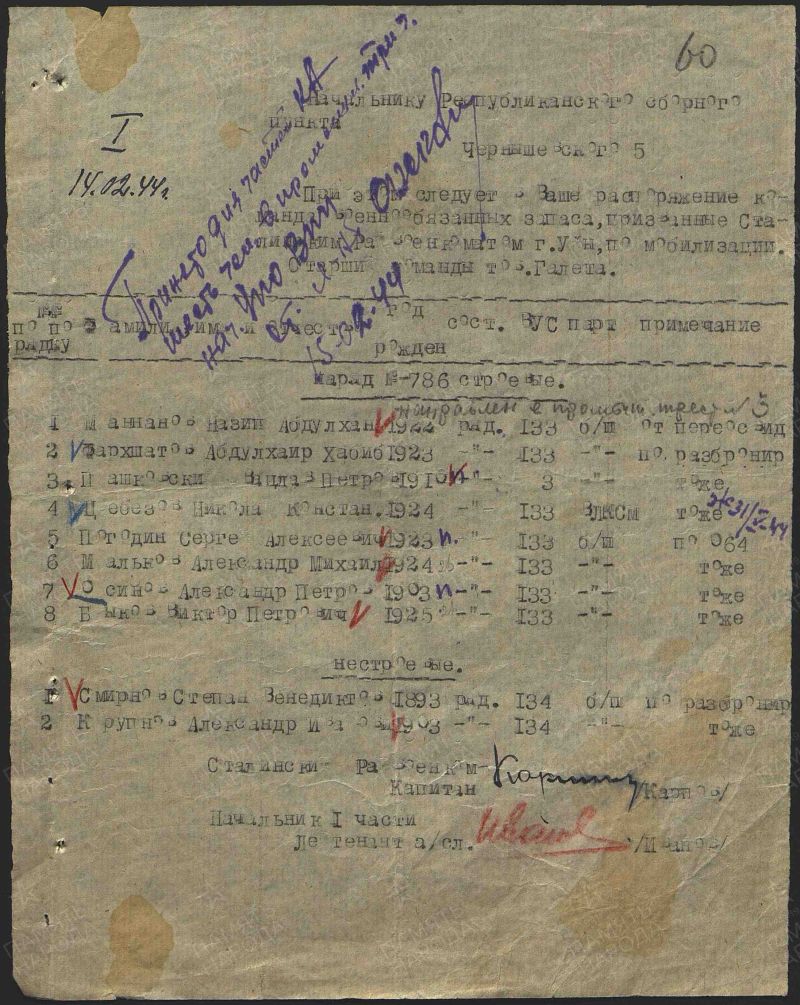 60
I
14.02.44г.
Начальнику Республиканского сборного
пункта
Чернышевского 5
При этом следует в Ваше распоряжение ко-
манда военнообязанных запаса, призванные Ста-
линским Рай военкоматом г. Уфы, по мобилизации.
Старший команды тов. Галета.
15.02.44
№№ по порядку Фамилия имя и отчество год рожден сост. ВУС парт примечание
Наряд №-786 строевые.
направлен в трест № 3
1 Маннанов Назип Абдулхан 1922 ряд. 133 б/п от переосвид
2 Фархшатов Абдулхаир Хабиб 1923 -"- 133 -"- по разбронир
3. Пашковски Вацлав Петров 1910 -"- 3 -"- тоже
4 Цебезов Никола Констан. 1924 -"- 133 ВЛКСМ тоже
5 Погодин Серге Алексеевич 1923 п. -"- 133 б/п по 064
6 Мальков Александр Михаил 1924 -"- 133 -"- тоже
7 Осинов Александр Петров 1903 п -"- 133 -"- тоже
8 Быков Виктор Петрович 1925 -"- 133 -"- тоже
нестроевые.
1 Смирнов Степан Венедиктов 1893 ряд. 134 б/п по разбронир
2 Крупнов Александр Ива ови 1903 -"- 134 -"- тоже
Сталински Рай военком-
Капитан /Карпов/
Начальник I части
Лейтенант а/сл. Иванов /Иванов/